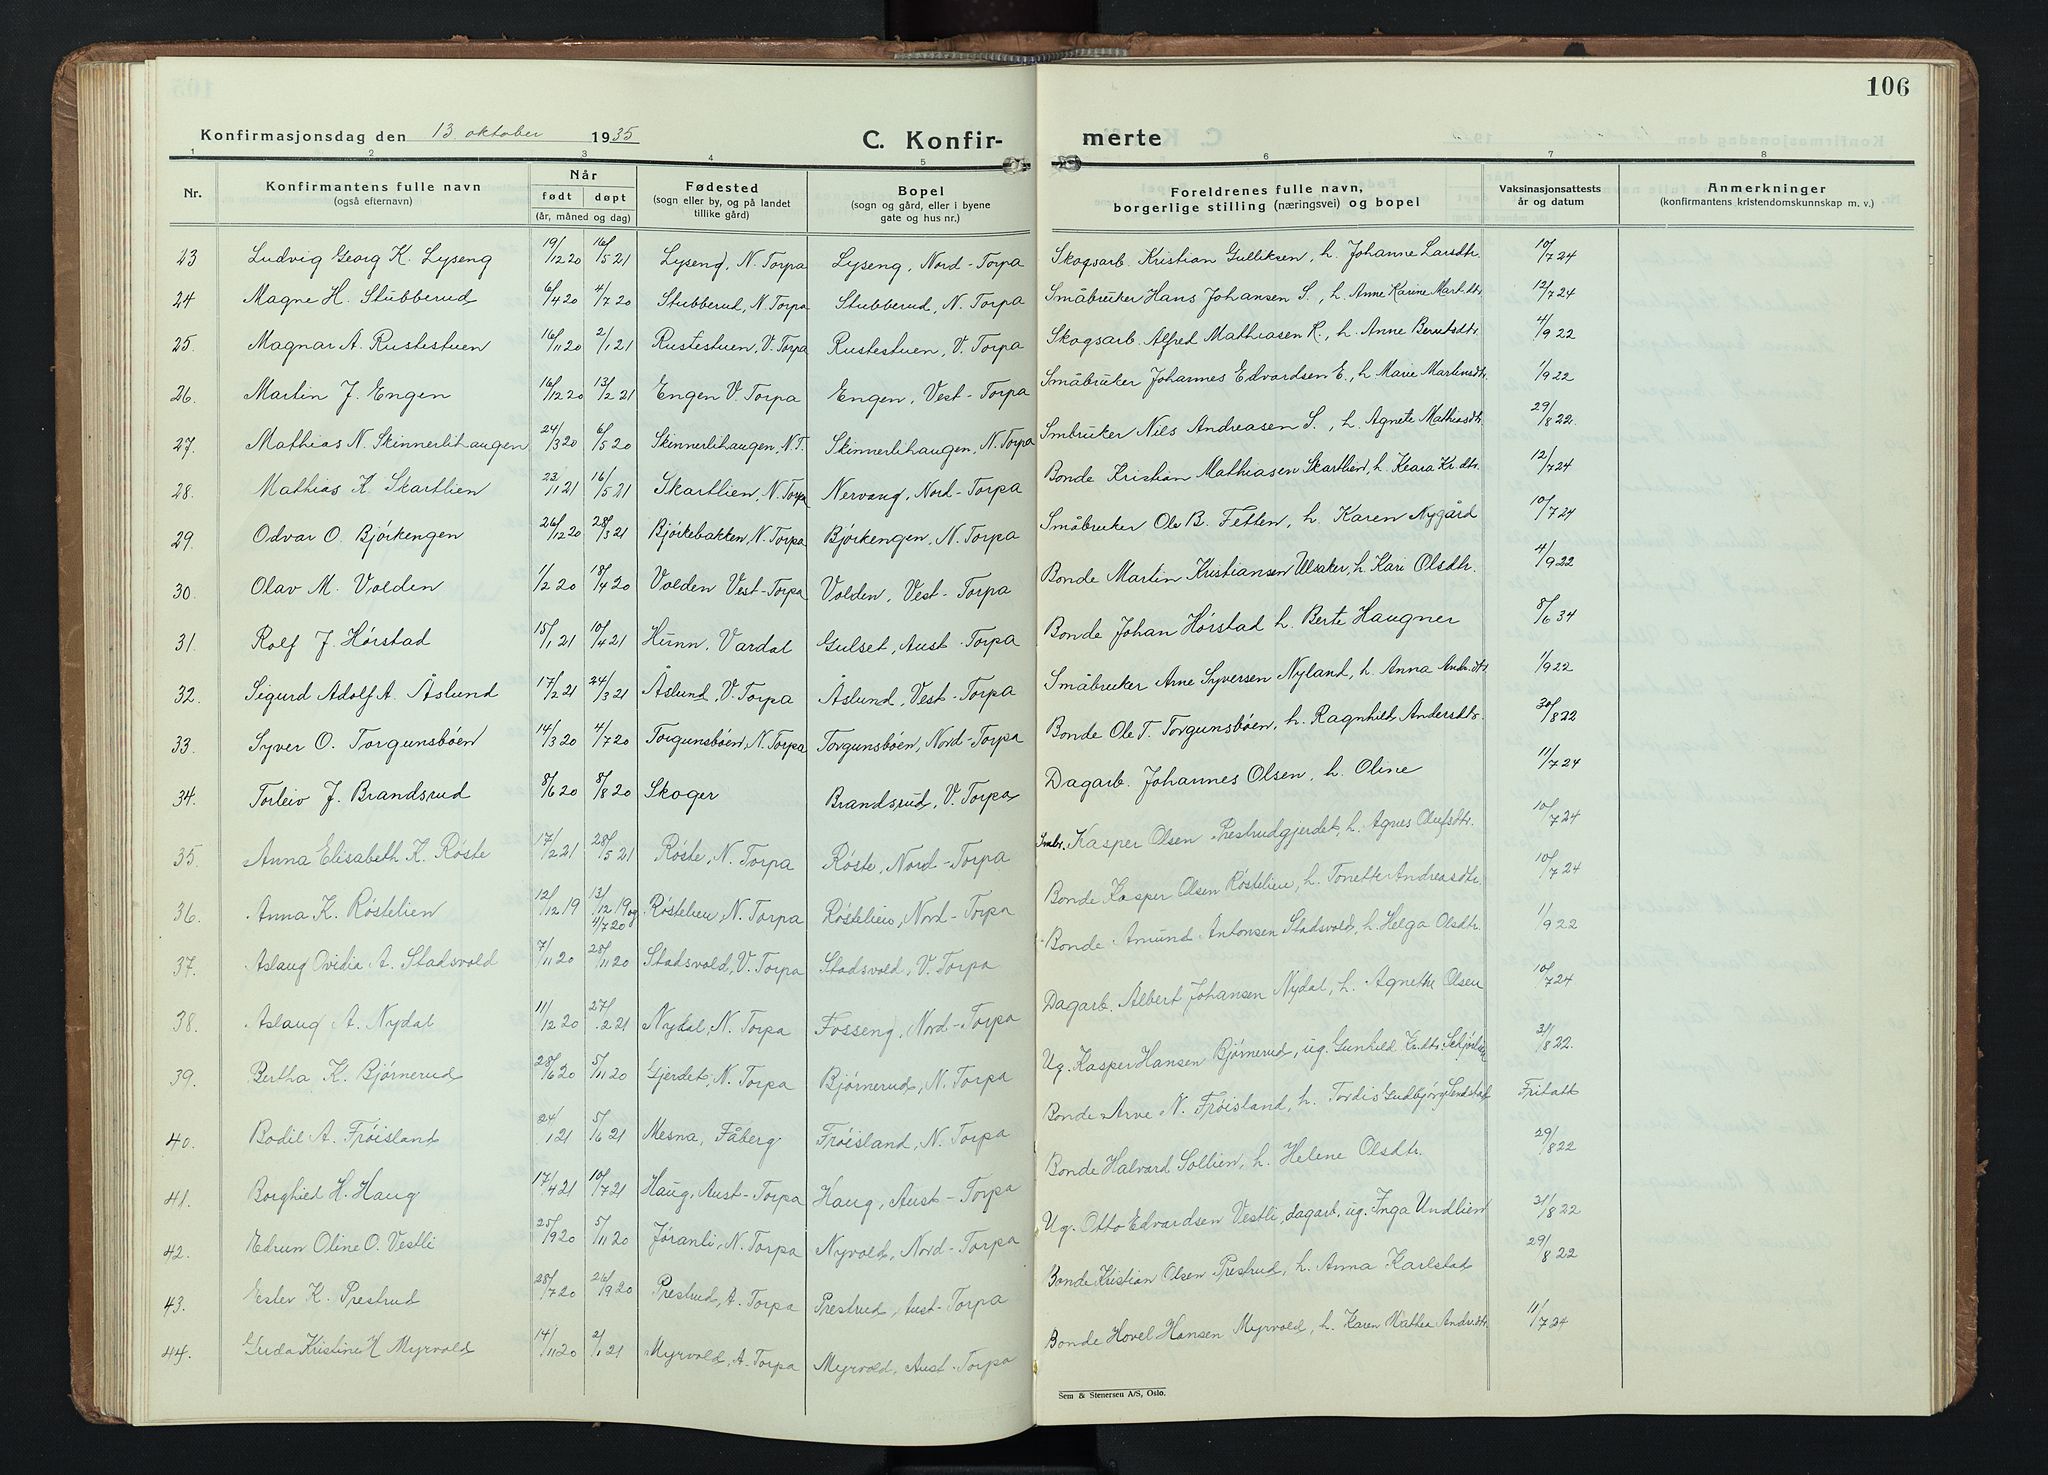 106
Konfirmasjonsdag den 13 oktober 1935
C. Konfir-
merte
1 2 3 4 5 6 7 8
Nr.
Konfirmantens fulle navn
(også efternavn)
Når
født døpt
(år, måned og dag)
Fødested
(sogn eller by, og på landet
tillike gård)
Bopel
(sogn og gård, eller i byene
gate og hus nr.)
Foreldrenes fulle navn,
borgerlige stilling (næringsvei) og bopel
Vaksinasjonsattests
år og datum
Anmerkninger
(konfirmantens kristendomskunnskap m. v.)
23 Ludvig Georg K. Lyseng 19/12 20 16/5 21 Lyseng, N. Torpa Lyseng, Nord-Torpa Skogsarb. Kristian Gulliksen, h. Johanne Larsdtr. 10/7 24
24 Magne H. Stubberud 6/4 20 4/7 20 Stubberud, N. Torpa Stubberud, N. Torpa Småbruker Hans Johansen S., h. Anne Karine Mart.dtr. 12/7 24
25. Magnar A. Rustestuen 16/11 20 2/1 21 Rustestuen, V. Torpa Rustestuen, V. Torpa Skogsarb. Alfred Mathiasen R., h. Anne Berntsdtr. 4/9 22
26. Martin J. Engen 16/12 20 13/2 21 Engen V. Torpa Engen, Vest-Torpa Småbruker Johannes Edvardsen E., h. Marie Martinsdtr. 1/9 22
27. Mathias N. Skinnerlihaugen 24/3 20 6/5 20 Skinnerlihaugen, N.T. Skinnerlihaugen, N. Torpa Smbruker Nils Andreasen S., h. Agnete Mathiasdtr. 29/8 22.
28. Mathias K. Skartlien 23/11 21 16/5 21 Skartlien, N. Torpa Nervang, Nord-Torpa Bonde Kristian Mathiasen Skartlien, h. Keara Kr.dtr. 12/7 24
29. Odvar O. Bjørkengen 26/12 20 28/3 21 Bjørkebakken, N. Torpa Bjørkengen, N. Torpa Småbruker Ole B. Fetten, h. Karen Nygård 10/7 24
30. Olav M. Volden 1/2 20 18/4 20 Volden Vest-Torpa Volden, Vest-Torpa Bonde Martin Kristiansen Ulsaker, h. Kari Olsdtr. 4/9 22
31. Rolf J. Hørstad 15/1 21 10/4 21 Hunn, Vardal Gulset, Aust-Torpa Bonde Johan Hørstad h. Berte Haugner 8/6 34
32. Sigurd Adolf A. Åslund 17/2 21 24/3 21 Åslund, V. Torpa Åslund, Vest-Torpa Småbruker Arne Syversen Nyland, h. Anna Andr.dtr. 1/9 22
33. Syver O. Torgunsbøen 14/3 20 4/7 20 Torgunsbøen, N. Torpa Torgunsbøen, Nord-Torpa Bonde Ole T. Torgunsbøen, h. Ragnhild Andersdtr. 30/8 22
34. Torleiv J. Brandsrud 8/6 20 8/8 20 Skoger Brandsrud, V. Torpa Dagarb. Johannes Olsen, h. Oline 11/7 24
35. Anna Elisabeth K. Røste 17/2 21 28/5 21 Røste, N. Torpa Røste, Nord-Torpa Smbr. Kasper Olsen Prestrudgjerdet, h. Agnes Olufsdtr. 10/7 24
36. Anna K. Røstelien 12/12 19 13/12 19 og 4/7 20 Røstelien, N. Torpa Røstelien, Nord-Torpa Bonde Kasper Olsen Røstelien, h. Tonette Andreasdtr. 10/7 24
37. Aslaug Ovidia A. Stadsvold 7/11 20 28/11 20 Stadsvold, V. Torpa Stadsvold, V. Torpa Bonde Amund Antonsen Stadsvold, h. Helga Olsdtr. 1/9 22
38. Aslaug A. Nydal 11/12 20 27/2 21 Nydal, N. Torpa Fosseng, Nord-Torpa Dagarb. Albert Johansen Nydal, h. Agnethe Olsen 10/7 24
39. Bertha K. Bjørnerud 28/6 20 5/11 20 Gjerdet, N. Torpa Bjørnerud, N. Torpa Ug. Kasper Hansen Bjørnerud, ug. Gunhild Kr.dtr. 31/8 22.
40. Bodil A. Frøisland 24/1 21 5/6 21 Mesna, Fåberg. Frøisland, N. Torpa Bonde Arve N. Frøisland, h. Tordis Gudbjørg Fritatt
41. Borghild H. Haug 17/4 21 10/7 21 Haug, Aust-Torpa Haug, Aust-Torpa Bonde Halvard Sollien, h. Helene Olsdtr. 29/8 22
42. Edrun Oline O. Vestli 25/9 20 5/11 20 Jøranli, N. Torpa Nyvold, Nord-Torpa Ug. Otto Edvardsen Vestli, dagarb, ug. Inga Undlien 31/8 22
43. Eslev K. Prestrud 28/7 20 26/9 20 Prestrud, A. Torpa Prestrud, Aust-Torpa Bonde Kristian Olsen Prestrud, h. Anna Karlstad 29/8 22
44. Guda Kristine H Myrvold 14/11 20 2/1 21 Myrvold, A. Torpa Myrvold, Aust-Torpa Bonde Hovel Hansen Myrvold, h. Karen Mathea Andr.dtr. 11/7 24
Sem & Stenersen A/S, Oslo.